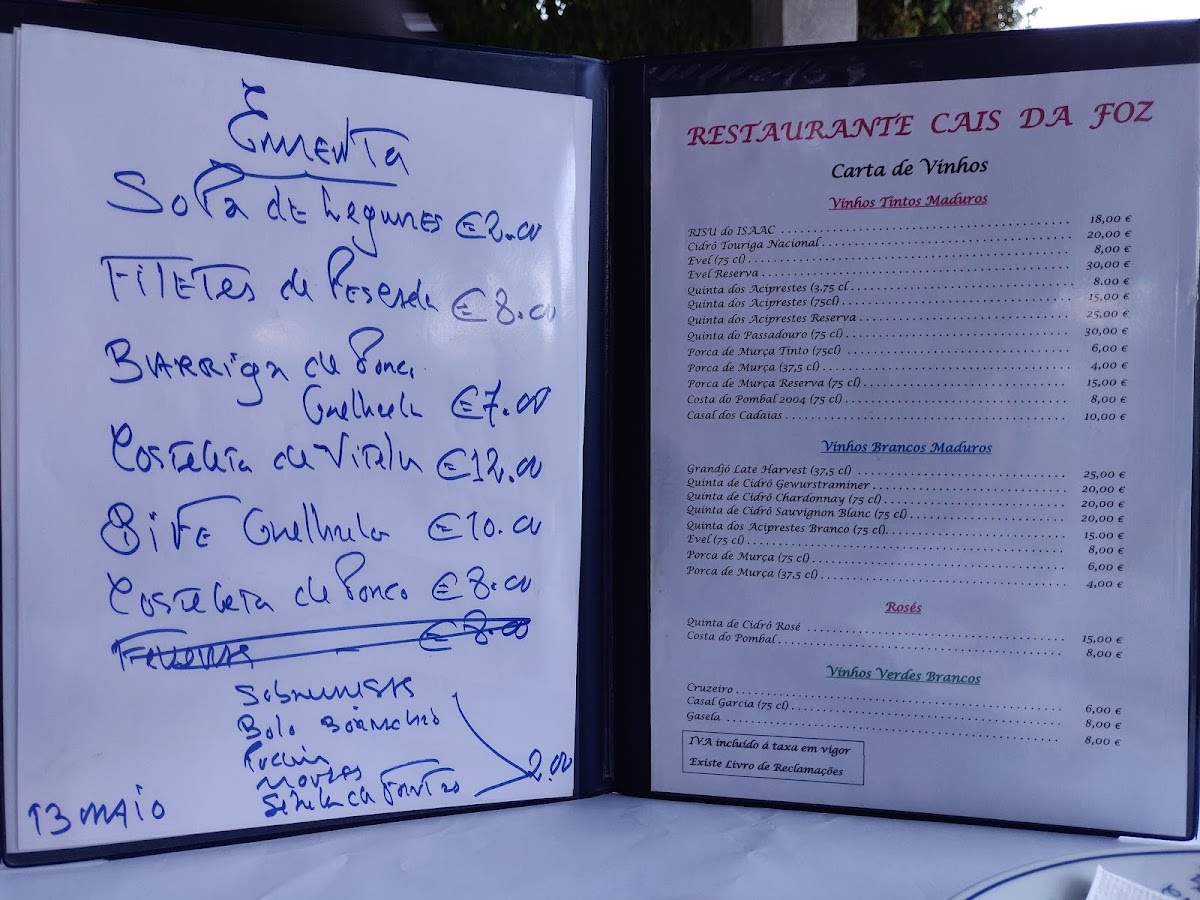 Ementa
Sopa de Legumes €2.00
Filetes de Pescada €8.00
Barriga de Porco
Grelhada €7.00
Costeleta de Vitela €12.00
Bife Grelhado €10.00
Costeleta de Porco €8.00
€8.00
Sobremesas
Bolo Bolacha
Pudim
Mousse
Salada de Frutas 2.00
13 MAIO
RESTAURANTE CAIS DA FOZ
Carta de Vinhos
Vinhos Tintos Maduros
RISU do ISAAC 18,00 €
Cidrô Touriga Nacional 20,00 €
Evel (75 cl) 8,00 €
Evel Reserva 30,00 €
Quinta dos Aciprestes (3.75 cl 8.00 €
Quinta dos Aciprestes (75cl) 15,00 €
Quinta dos Aciprestes Reserva 25,00 €
Quinta do Passadouro (75 cl) 30,00 €
Porca de Murça Tinto (75cl) 6,00 €
Porca de Murça (37,5 cl) 4,00 €
Porca de Murça Reserva (75 cl) 15,00 €
Costa do Pombal 2004 (75 cl) 8,00 €
Casal dos Cadaias 10,00 €
Vinhos Brancos Maduros
Grandjó Late Harvest (37,5 cl) 25,00 €
Quinta de Cidrô Gewurstraminer 20,00 €
Quinta de Cidrô Chardonnay (75 cl) 20,00 €
Quinta de Cidrô Sauvignon Blanc (75 cl) 20,00 €
Quinta dos Aciprestes Branco (75 cl). 15.00 €
Evel (75 cl) 8,00 €
Porca de Murça (75 cl) 6,00 €
Porca de Murça (37,5 cl) 4,00 €
Rosés
Quinta de Cidrô Rosé 15,00 €
Costa do Pombal 8,00 €
Vinhos Verdes Brancos
Cruzeiro 6,00 €
Casal Garcia (75 cl) 8,00 €
Gasela 8,00 €
IVA incluído á taxa em vigor
Existe Livro de Reclamações